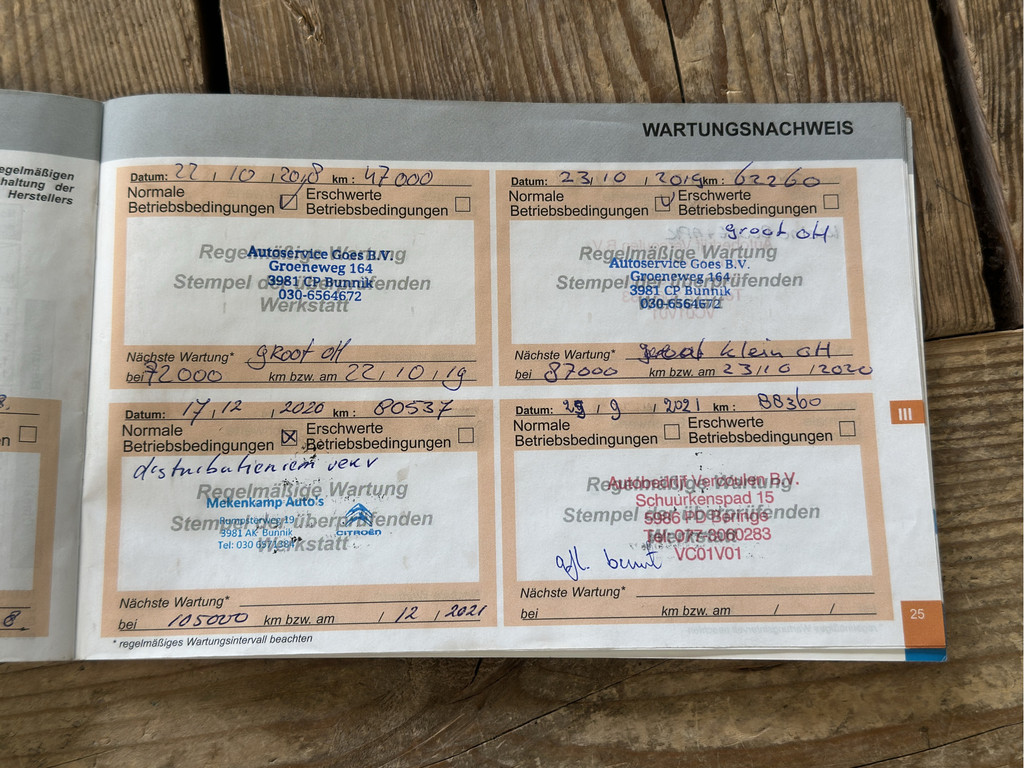 egelmäßigen
haltung der
Herstellers
WARTUNGSNACHWEIS
Datum: 22 , 10 , 2018 km : 47000
Normale
Betriebsbedingungen
Erschwerte
Betriebsbedingungen
Regelmäßige Wartung
Stempel der überprüfenden
Werkstatt
Autoservice Goes B.V.
Groeneweg 164
3981 CP Bunnik
030-6564672
Nächste Wartung* groot OH
bei 72000 km bzw. am 22 , 10 , 19
Datum: 23 , 10 , 2019 km : 62260
Normale
Betriebsbedingungen
Erschwerte
Betriebsbedingungen
groot OH
Regelmäßige Wartung
Stempel der überprüfenden
Werkstatt
Autoservice Goes B.V.
Groeneweg 164
3981 CP Bunnik
030-6564672
VC01V01
Nächste Wartung* klein OH
bei 87000 km bzw. am 23 , 10 , 2020
Datum: 17 , 12 , 2020 km : 80537
Normale
Betriebsbedingungen
Erschwerte
Betriebsbedingungen
distributieriem verv
Regelmäßige Wartung
Stempel der überprüfenden
Werkstatt
Mekenkamp Auto's
Rumpsterweg 19
3981 AK Bunnik
Tel: 030 6571384
CITROËN
Nächste Wartung*
bei 105000 km bzw. am / 12 , 2021
* regelmäßiges Wartungsintervall beachten
Datum: 29 , 9 , 2021 km : 88360
Normale
Betriebsbedingungen
Erschwerte
Betriebsbedingungen
Regelmäßige Wartung
Stempel der überprüfenden
Werkstatt
Autobedrijf Vercoulen B.V.
Schuurkenspad 15
5986 PD Beringe
Tel: 077-3060283
VC01V01
Nächste Wartung*
bei km bzw. am / /
III
25
n
8.